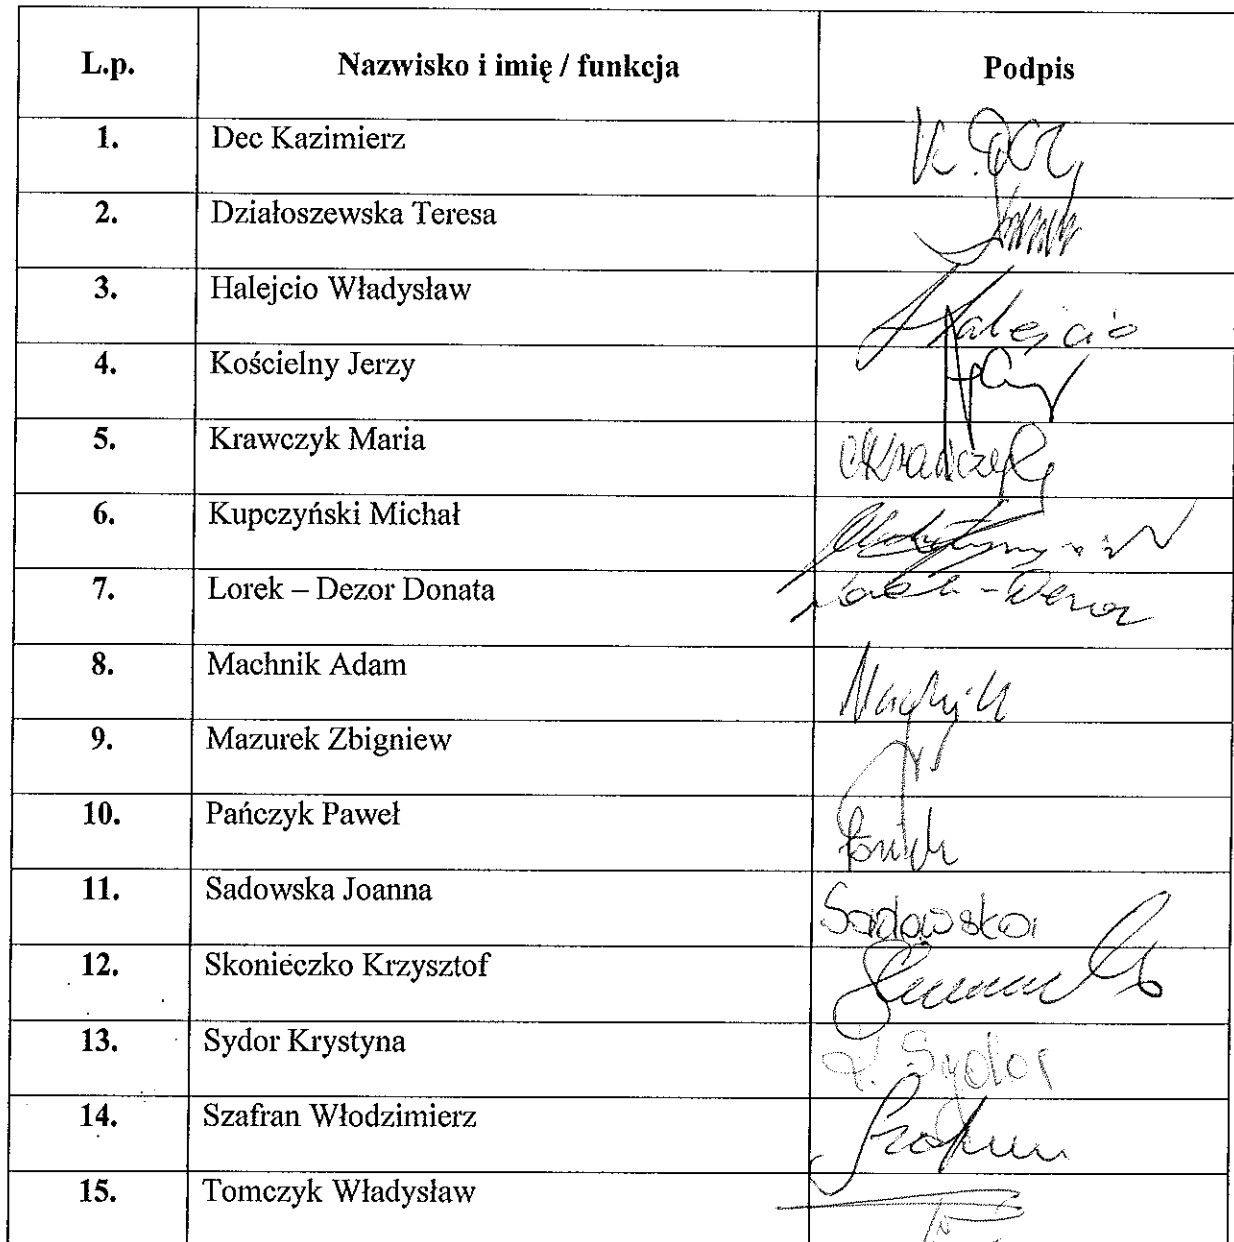 L.p. Nazwisko i imię / funkcja Podpis
1. Dec Kazimierz K. Dec
2. Działoszewska Teresa
3. Halejcio Władysław Halejcio
4. Kościelny Jerzy
5. Krawczyk Maria MKrawczyk
6. Kupczyński Michał
7. Lorek – Dezor Donata Lorek-Dezor
8. Machnik Adam Machnik
9. Mazurek Zbigniew
10. Pańczyk Paweł
11. Sadowska Joanna Sadowska
12. Skonieczko Krzysztof
13. Sydor Krystyna K. Sydor
14. Szafran Włodzimierz Szafran
15. Tomczyk Władysław